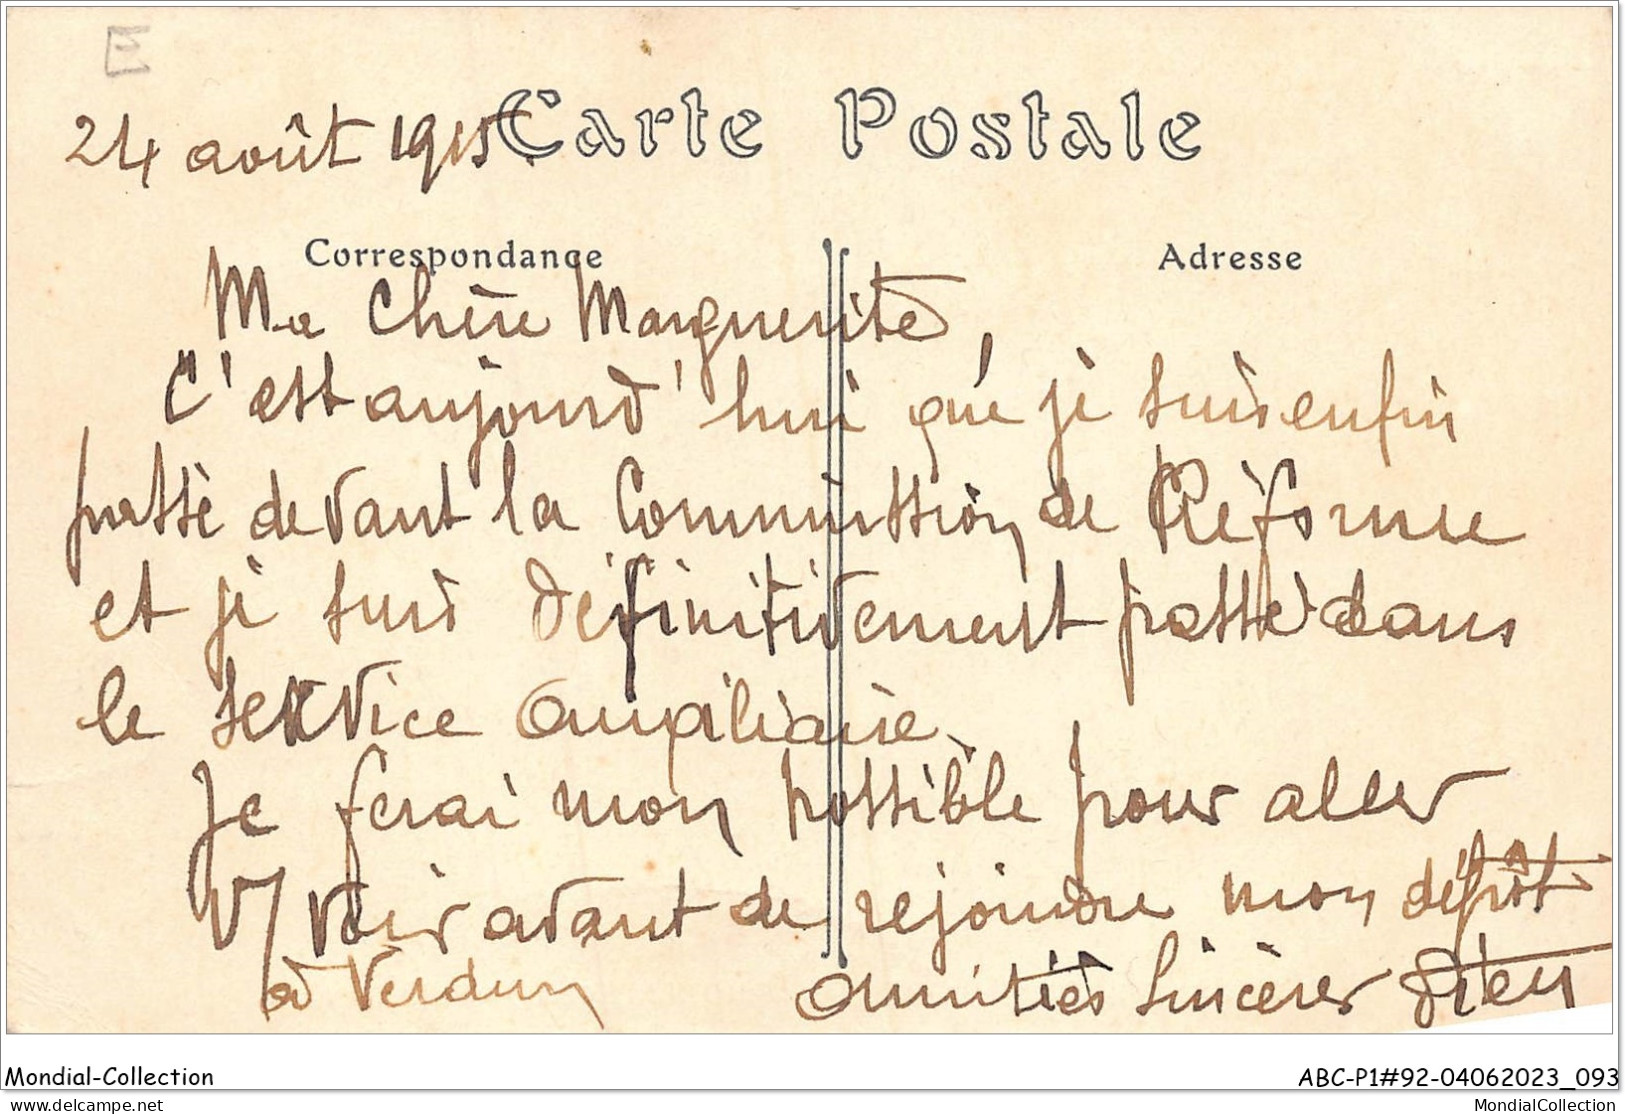 E
24 août 1915
Carte Postale
Correspondance
Adresse
Ma Chère Marguerite,
C'est aujourd'hui que je suis enfin
passé devant la Commission de Réforme
et je suis définitivement passé dans
le service auxiliaire.
Je ferai mon possible pour aller
V/ voir avant de rejoindre mon dépôt
à Verdun
amitiés sincères
Mondial-Collection
ABC-P1#92-04062023_093
mondial-collection.delcampe.net
MondialCollection